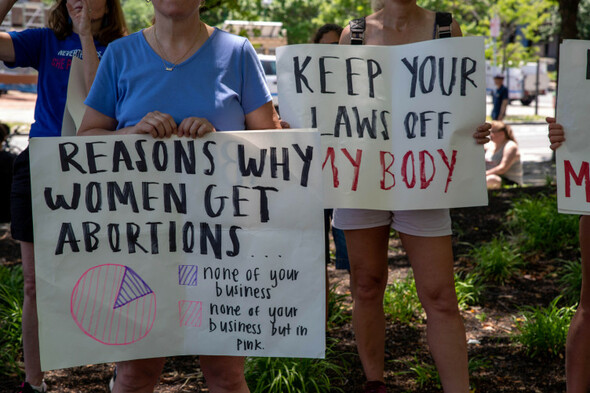 REASONS WHY
WOMEN GET
ABORTIONS...
none of your
business
none of your
business but in
PINK.
KEEP YOUR
LAWS OFF
MY BODY
M